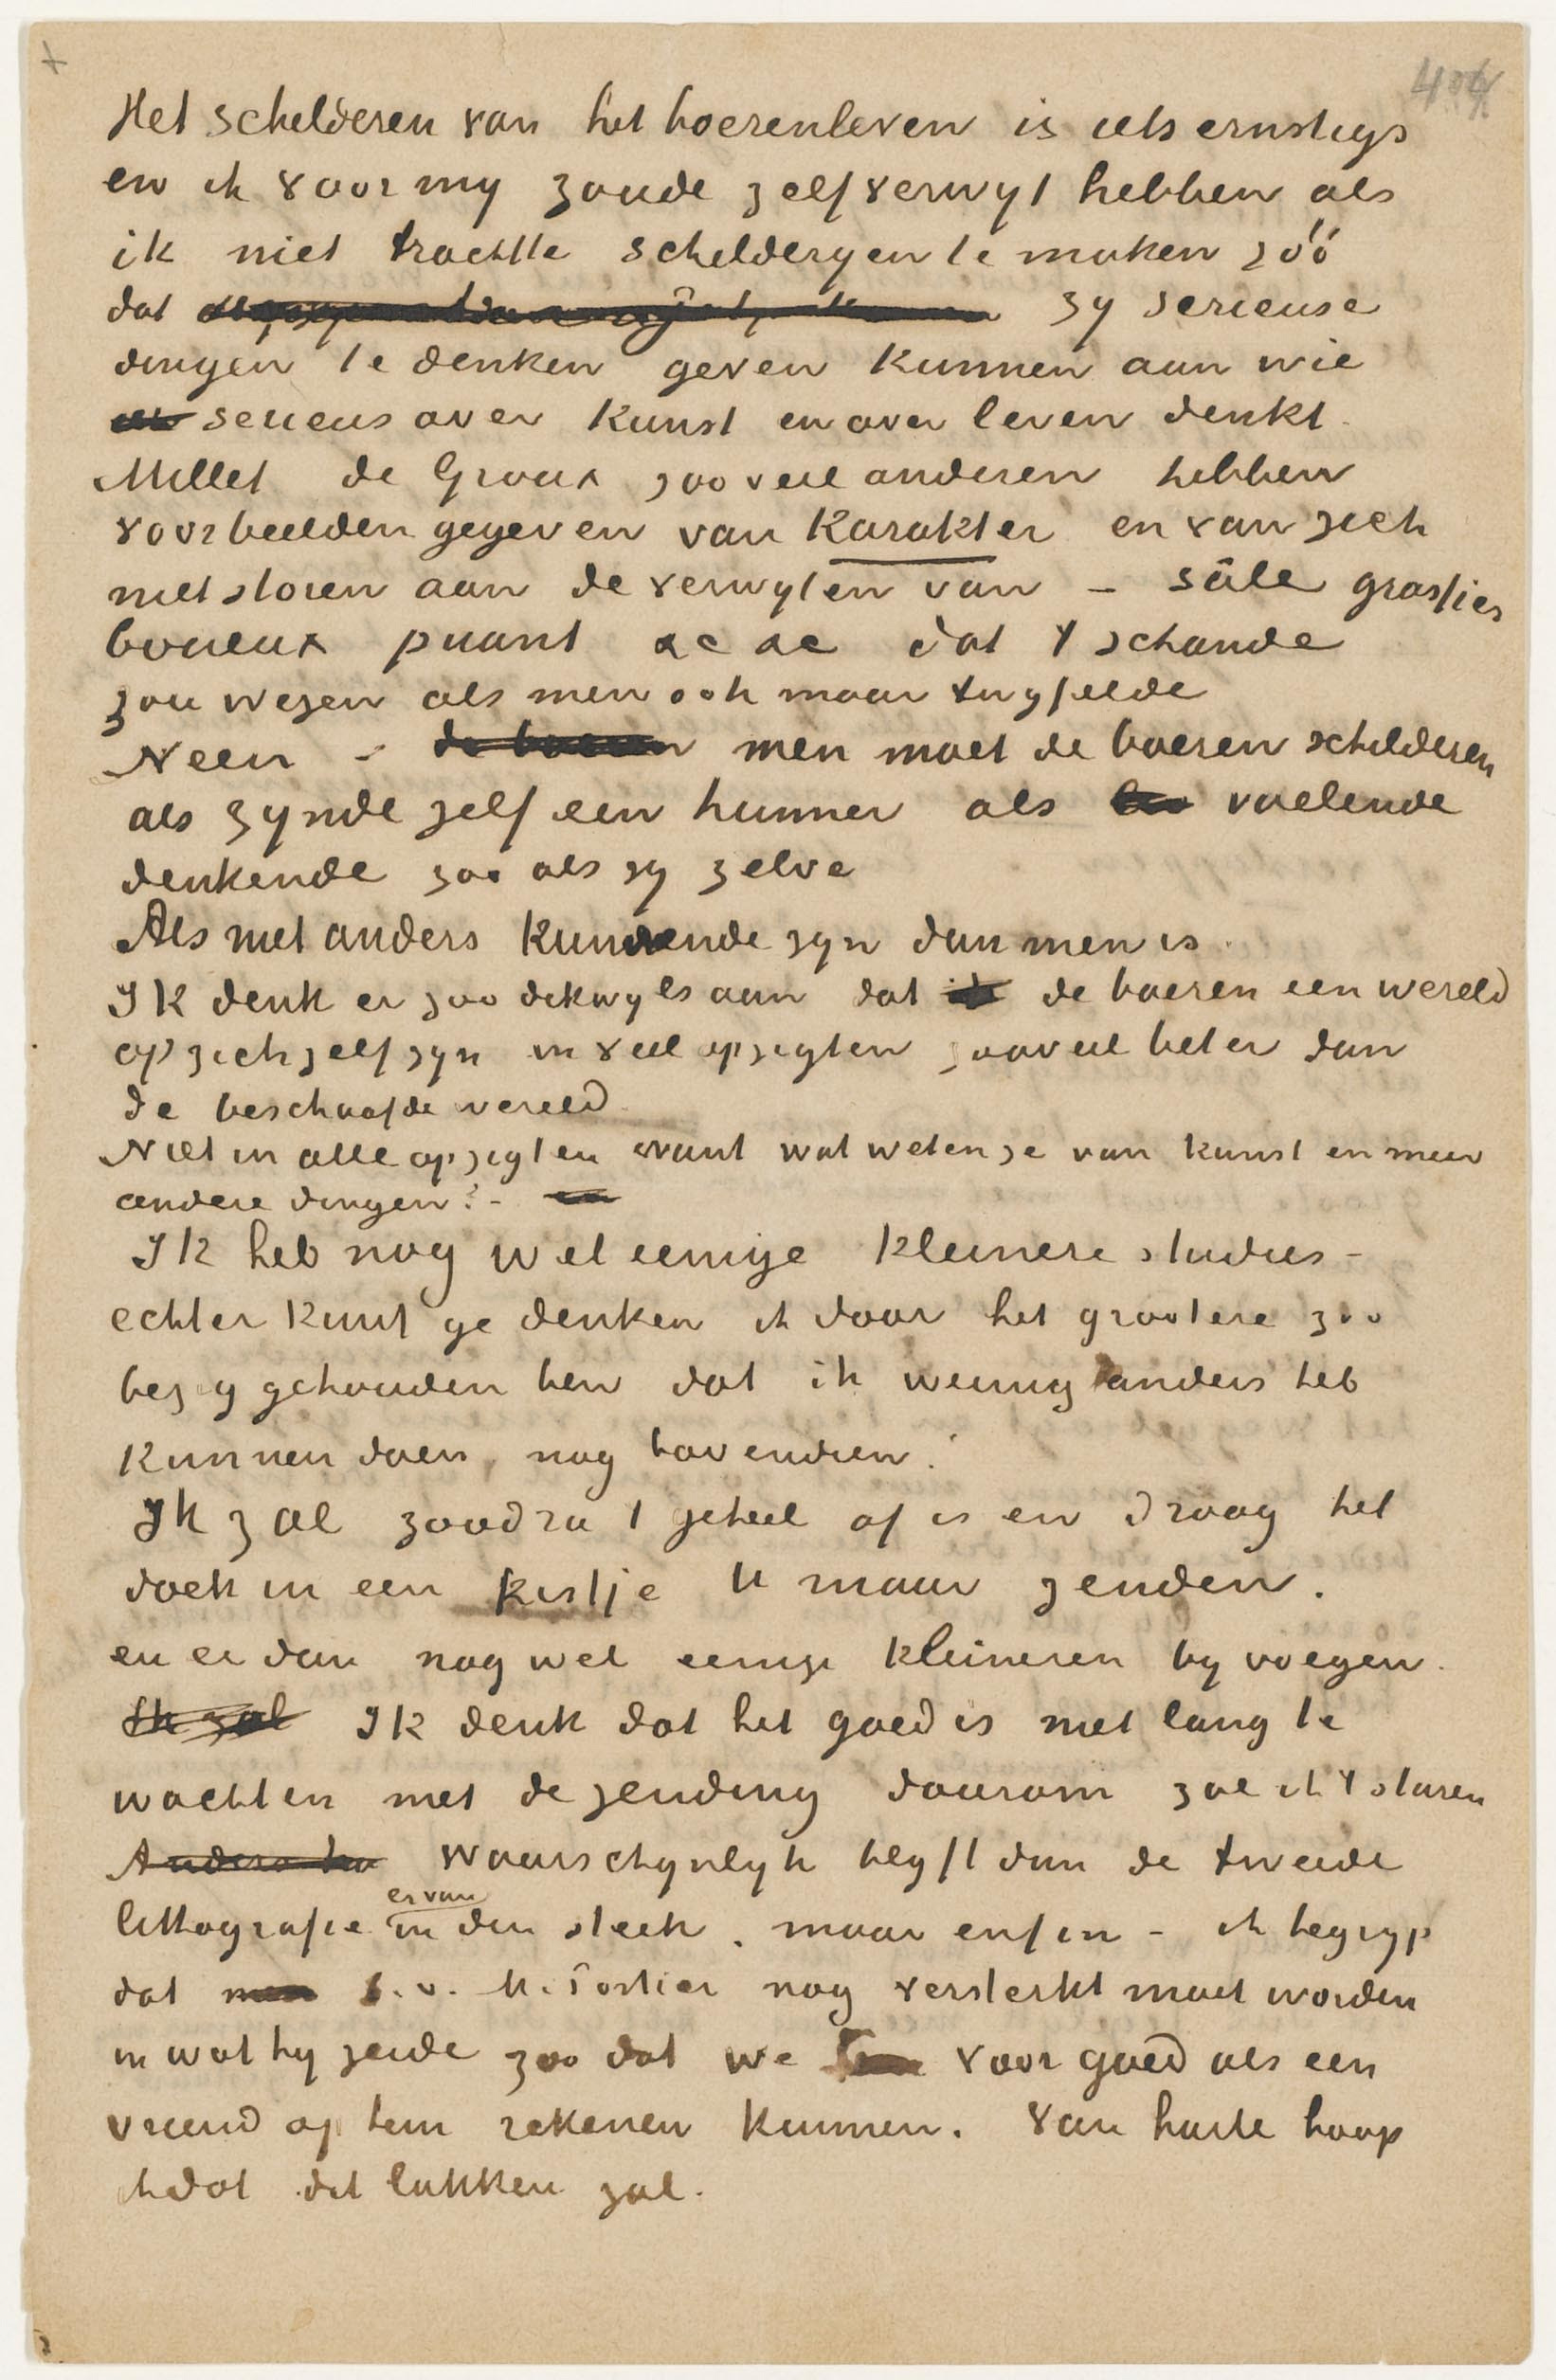 404
Het schilderen van het boerenleven is iets ernstigs
en ik voor mij zoude zelfverwijt hebben als
ik niet trachtte schilderijen te maken zóó
dat zij serieuse
dingen te denken geven kunnen aan wie
serieus over kunst en over leven denkt.
Millet de Groux zoo veel anderen hebben
voorbeelden gegeven van Karakter en van zich
niet storen aan de verwijten van – sâle grossier
boueux puant &c &c dat t schande
zou wezen als men ook maar twijfelde
Neen – de boeren men moet de boeren schilderen
als zijnde zelf een hunner als voelende
denkende zoo als zij zelve
Als niet anders kunnende zijn dan men is.
Ik denk er zoo dikwijls aan dat de boeren een wereld
op zich zelf zijn in veel opzigten zooveel beter dan
de beschaafde wereld.
Niet in alle opzigten want wat weten ze van kunst en meer
andere dingen? – en
Ik heb nog wel eenige kleinere studies –
echter kunt ge denken ik door het grootere zoo
bezig gehouden ben dat ik weinig anders heb
kunnen doen, nog bovendien.
Ik zal zoodra t geheel af is en droog het
doek in een kistje U maar zenden.
en er dan nog wel eenige kleineren bij voegen.
Ik zal Ik denk dat het goed is niet lang te
wachten met de zending daarom zal ik t sturen
Anders Waarschijnlijk blijft dan de tweede
lithografie ervan in den steek. maar enfin – ik begrijp
dat men b.v. M. Portier nog versterkt moet worden
in wat hij zeide zoo dat we voor goed als een
vriend op hem rekenen kunnen. Van harte hoop
ik dat dit lukken zal.